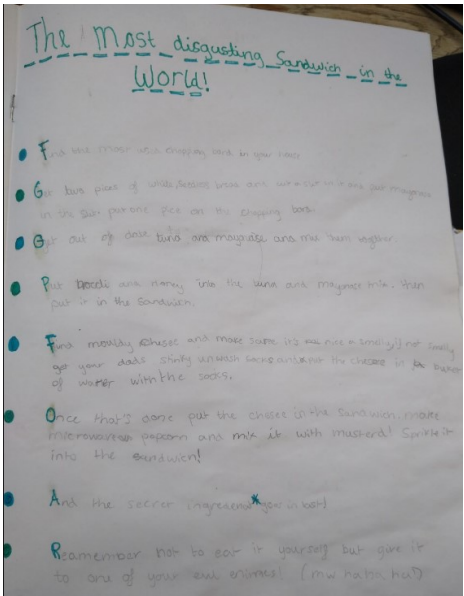 The Most disgusting Sandwich in the
World!
Find the most chopping bord in your
Get two pices of bread and put mayonase
in the put one pice on the chopping bord.
Get out of date tuna and mayonaise and mix them together.
Put brocoli and Honey into the tuna and mayonase mix. Then
put it in the sandwich.
Find mouldy cheese and make sure it's nice n smelly if not smelly
go your dads stinky unwash socks and put the cheese in
of water with the socks.
Once that's done put the chesse in the sandwich, make
microwave popcorn and mix it with musterd! Sprinkle it
into the sandwich!
And the secret ingredent*
Reamember not to eat it yourself but give it
to one of your evil enimes! (mw ha ha ha!)